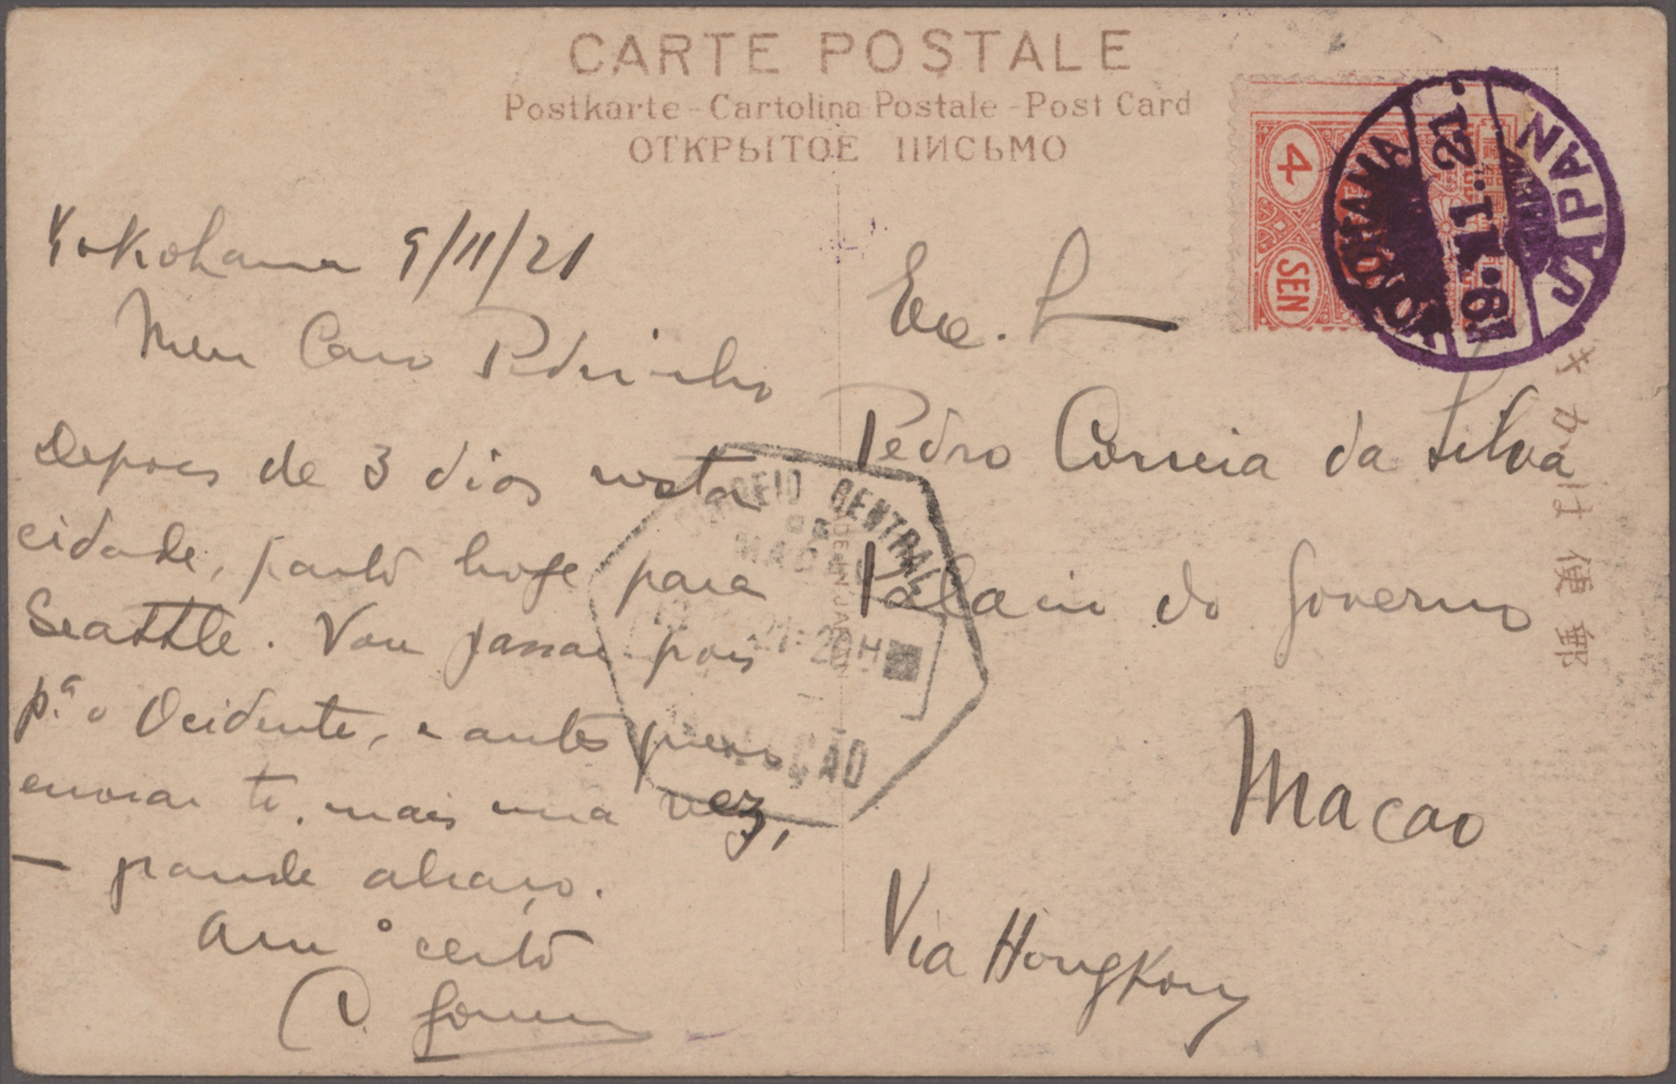 CARTE POSTALE
Postkarte - Cartolina Postale - Post Card
ОТКРЫТОЕ ПИСЬМО
4
SEN
YOKOHAMA
JAPAN
Yokohama 9/11/21
Meu Caro Pedrinho
Depois de 3 dias nesta
cidade, parto hoje para
Seattle. Vou passar pois
p.ª o Ocidente, e antes quero
enviar te, mais uma vez,
— grande abraço.
Am° certo
Gomes
Exº. S
Pedro Correia da Silva
Palacio do Governo
Macao
Via HongKong
CORREIO CENTRAL
DE
MACAU
21 - 20H
ÇÃO
MADE IN JAPAN
郵便はかき